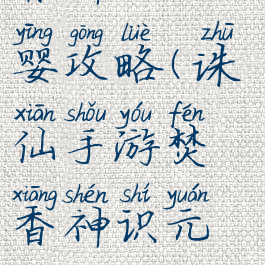 yīng gōng lüè zhū
婴攻略(诛
xiān shǒu yóu fén
仙手游焚
xiāng shén shí yuán
香神识元